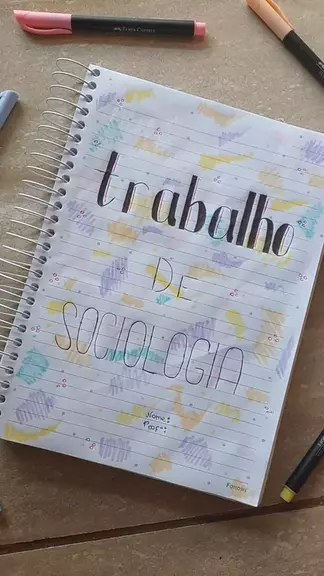 trabalho
DE
SOCIOLOGIA
Nome:
Prof: